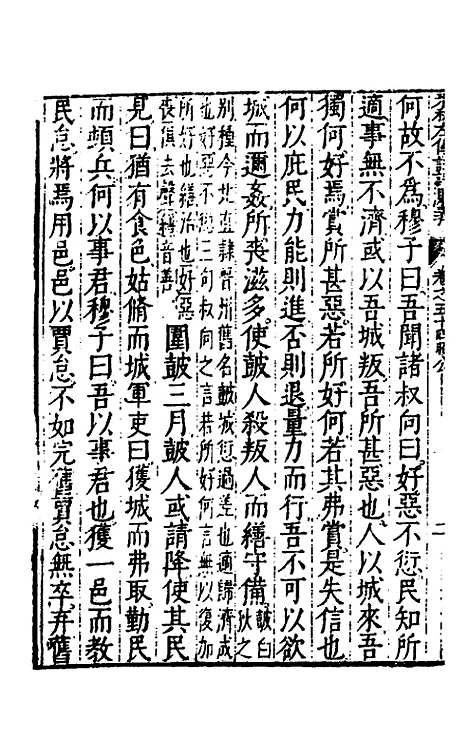 何故不為穆子曰吾聞諸叔向曰好惡不愆民知所
適事無不濟或以吾城叛吾所甚惡也人以城來吾
獨何好焉賞所甚惡若所好何若其弗賞是失信也
何以庇民力能則進否則退量力而行吾不可以欲
城而邇姦所喪滋多使鼓人殺叛人而繕守備鼓白狄之
別種今北直隸晉州舊名鼓城愆過差也適歸濟成
也好惡不愆三句叔向之言若所好何言無以復加
所好也繕治也好惡
喪俱去聲繕音善圍鼓三月鼓人或請降使其民
見曰猶有食色姑脩而城軍吏曰獲城而弗取勤民
而頓兵何以事君穆子曰吾以事君也獲一邑而教
民怠將焉用邑邑以賈怠不如完舊賈怠無卒弃舊